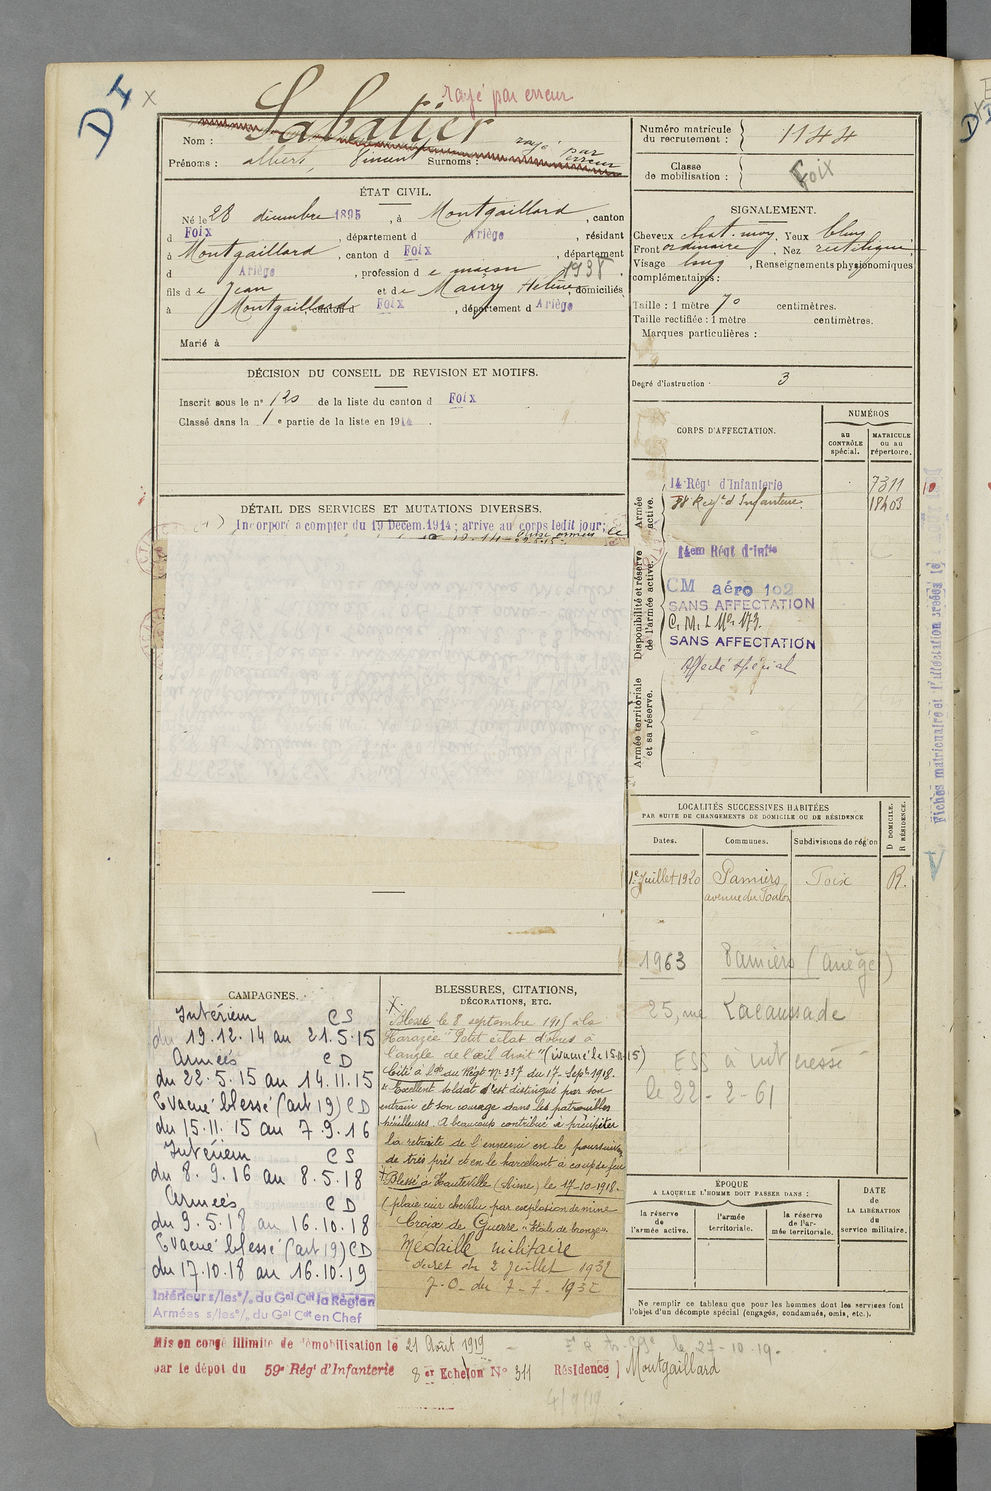 D I
X
rayé par erreur
Sabatier
Nom :
rayé par erreur
Prénoms : albert Surnoms :
Numéro matricule du recrutement : 1144
Classe de mobilisation :
Foix
ÉTAT CIVIL.
Né le 28 décembre 1895, à Montgaillard, canton
d Foix, département d Ariège, résidant
à Montgaillard, canton d Foix, département
d Ariège, profession de maçon 1938.
fils de Jean et de Maury Hélène, domiciliés
à Montgaillard, canton d Foix, département d Ariège
Marié à
SIGNALEMENT.
Cheveux chat. moy, Yeux bleus
Front ordinaire, Nez rectiligne
Visage long, Renseignements physiognomiques
complémentaires :
Taille : 1 mètre 70 centimètres.
Taille rectifiée : 1 mètre centimètres.
Marques particulières :
Degré d'instruction : 3
DÉCISION DU CONSEIL DE REVISION ET MOTIFS.
Inscrit sous le n° 120 de la liste du canton d Foix
Classé dans la 1e partie de la liste en 1914.
DÉTAIL DES SERVICES ET MUTATIONS DIVERSES.
Incorporé à compter du 19 Décem. 1914 ; arrive au corps ledit jour ;
CORPS D'AFFECTATION.
NUMÉROS
au CONTRÔLE spécial.
MATRICULE ou au répertoire.
Armée active.
14 Régt d'Infanterie 7311
88 Regt d'Infanterie. 18403
Disponibilité et réserve de l'armée active.
14em Régt d'Infie
CM aéro 102
SANS AFFECTATION
C. M. I. No. 173.
SANS AFFECTATION
Affecté spécial
Armée territoriale et sa réserve.
Fiches matriculaire et d'affectation créées le
LOCALITÉS SUCCESSIVES HABITÉES
PAR SUITE DE CHANGEMENTS DE DOMICILE OU DE RÉSIDENCE
D DOMICILE. R RÉSIDENCE.
Dates. Communes. Subdivisions de région
1er Juillet 1920 Pamiers Foix R.
avenue du
1963 Pamiers (Ariège)
25, rue Lacaussade
ESS à intéressé
le 22-2-61
CAMPAGNES.
Intérieur CS
du 19.12.14 au 21.5.15
Armées CD
du 22.5.15 au 14.11.15
Evacué blessé (art 19) CD
du 15.11.15 au 7.9.16
Intérieur CS
du 8.9.16 au 8.5.18
Armées CD
du 9.5.18 au 16.10.18
Evacué blessé (art 19) CD
du 17.10.18 au 16.10.19
Intérieur s/les o/. du Gal Cdt la Région
Armées s/les o/. du Gal Cdt en Chef
BLESSURES, CITATIONS,
DÉCORATIONS, ETC.
Blessé le 8 septembre 1915 à la
Harazée "Petit éclat d'obus à
l'angle de l'œil droit" (évacué le 15-11-15)
Cité à l'ode du Régt N° 337 du 17-Sept 1918.
"Excellent soldat s'est distingué par son
entrain et son courage dans les patrouilles
périlleuses. A beaucoup contribué à précipiter
la retraite de l'ennemi en le poursuivant
de très près et en le harcelant à coups de feu
Blessé à Hauteville (Aisne) le 17-10-1918.
(plaie cuir chevelu par explosion de mine
Croix de Guerre "Etoile de bronze"
Médaille militaire
décret du 2 Juillet 1932
J.O. du 7-7-1932
ÉPOQUE
A LAQUELLE L'HOMME DOIT PASSER DANS :
la réserve de l'armée active.
l'armée territoriale.
la réserve de l'armée territoriale.
DATE de LA LIBÉRATION du service militaire.
Ne remplir ce tableau que pour les hommes dont les services font
l'objet d'un décompte spécial (engagés, condamnés, omis, etc.).
Mis en congé illimité de démobilisation le 21 Août 1919
le 27-10-19.
par le dépôt du 59e Régt d'Infanterie 8er Echelon N° 311 Résidence Montgaillard
4/9/19